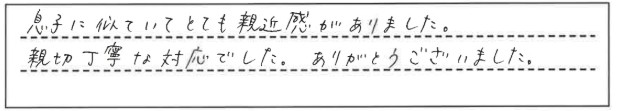 息子に似ていてとても親近感がありました。
親切丁寧な対応でした。ありがとうございました。